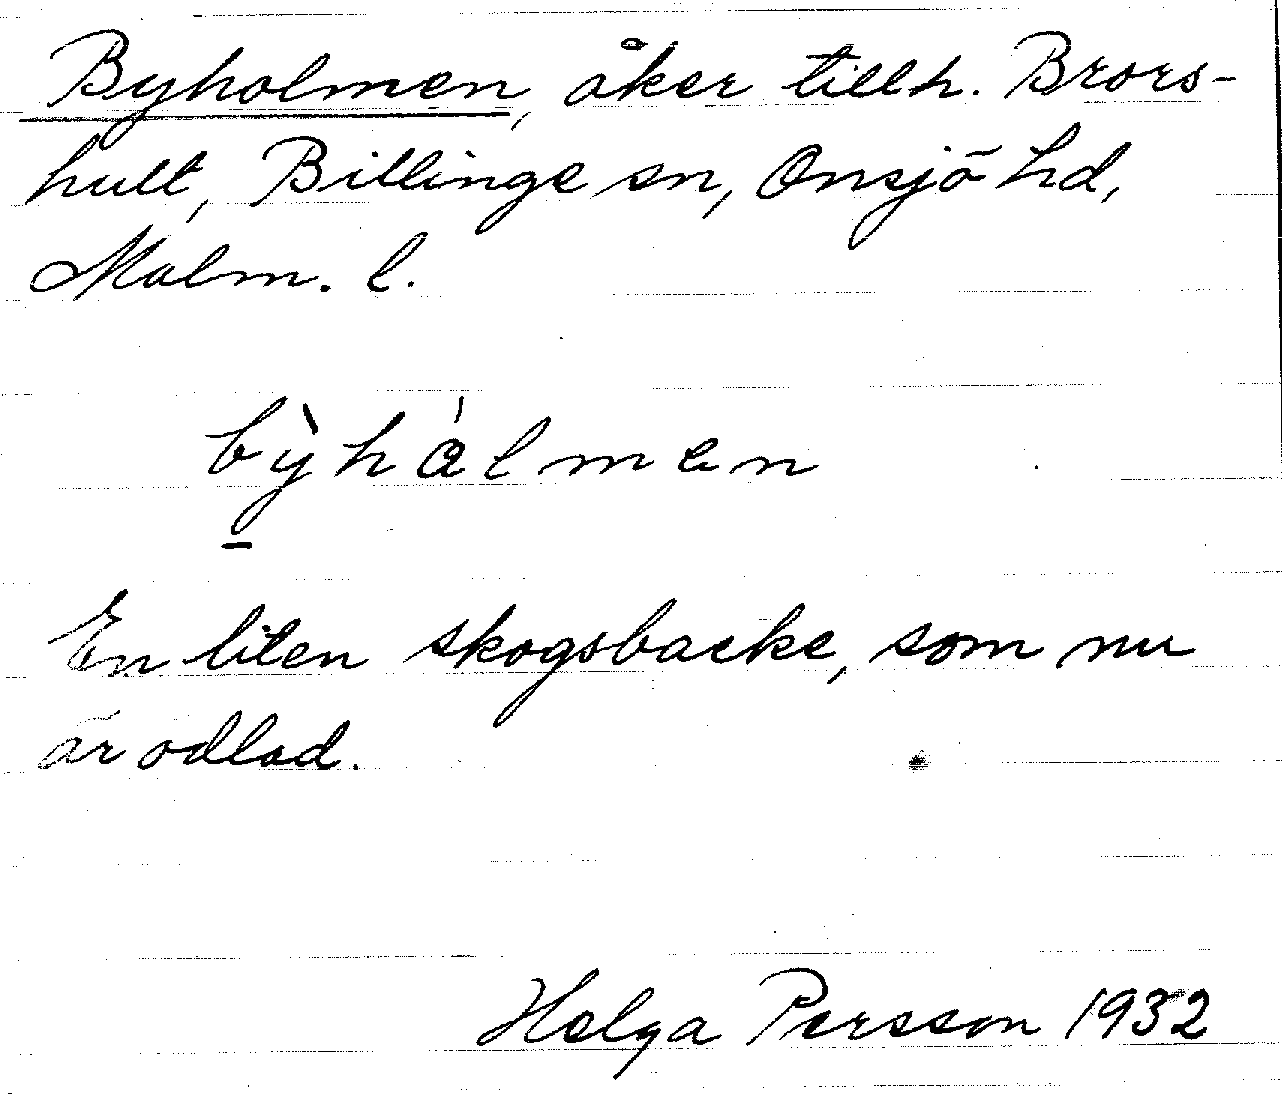 Byholmen, åker tillh. Brors-
hult, Billinge sn, Onsjö hd,
Malm. l.
bỳhålmen
En liten skogsbacke, som nu
är odlad.
Helga Persson 1932